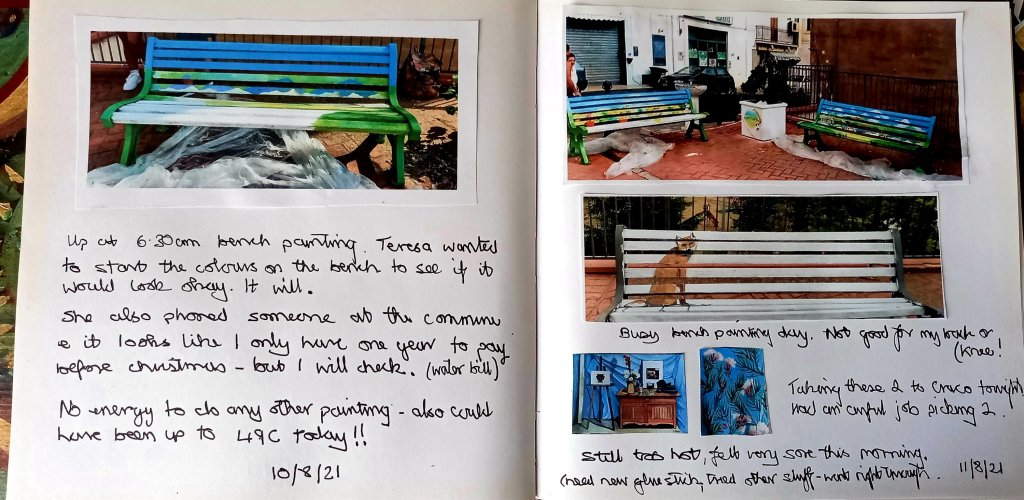 Up at 6.30am bench painting. Teresa wanted
to start the colours on the bench to see if it
would look okay. It will.
She also phoned someone at the commune
e it looks like I only have one year to pay
before christmas - but I will check. (water bill)
No energy to do any other painting - also could
have been up to 49C today!!
10/8/21
Busy bench painting day. Not good for my back or
(knee!
Taking these 2 to Craco tonight
had an awful job picking 2.
Still too hot, felt very sore this morning.
(need new glue stick, tried other stuff - went right through. 11/8/21